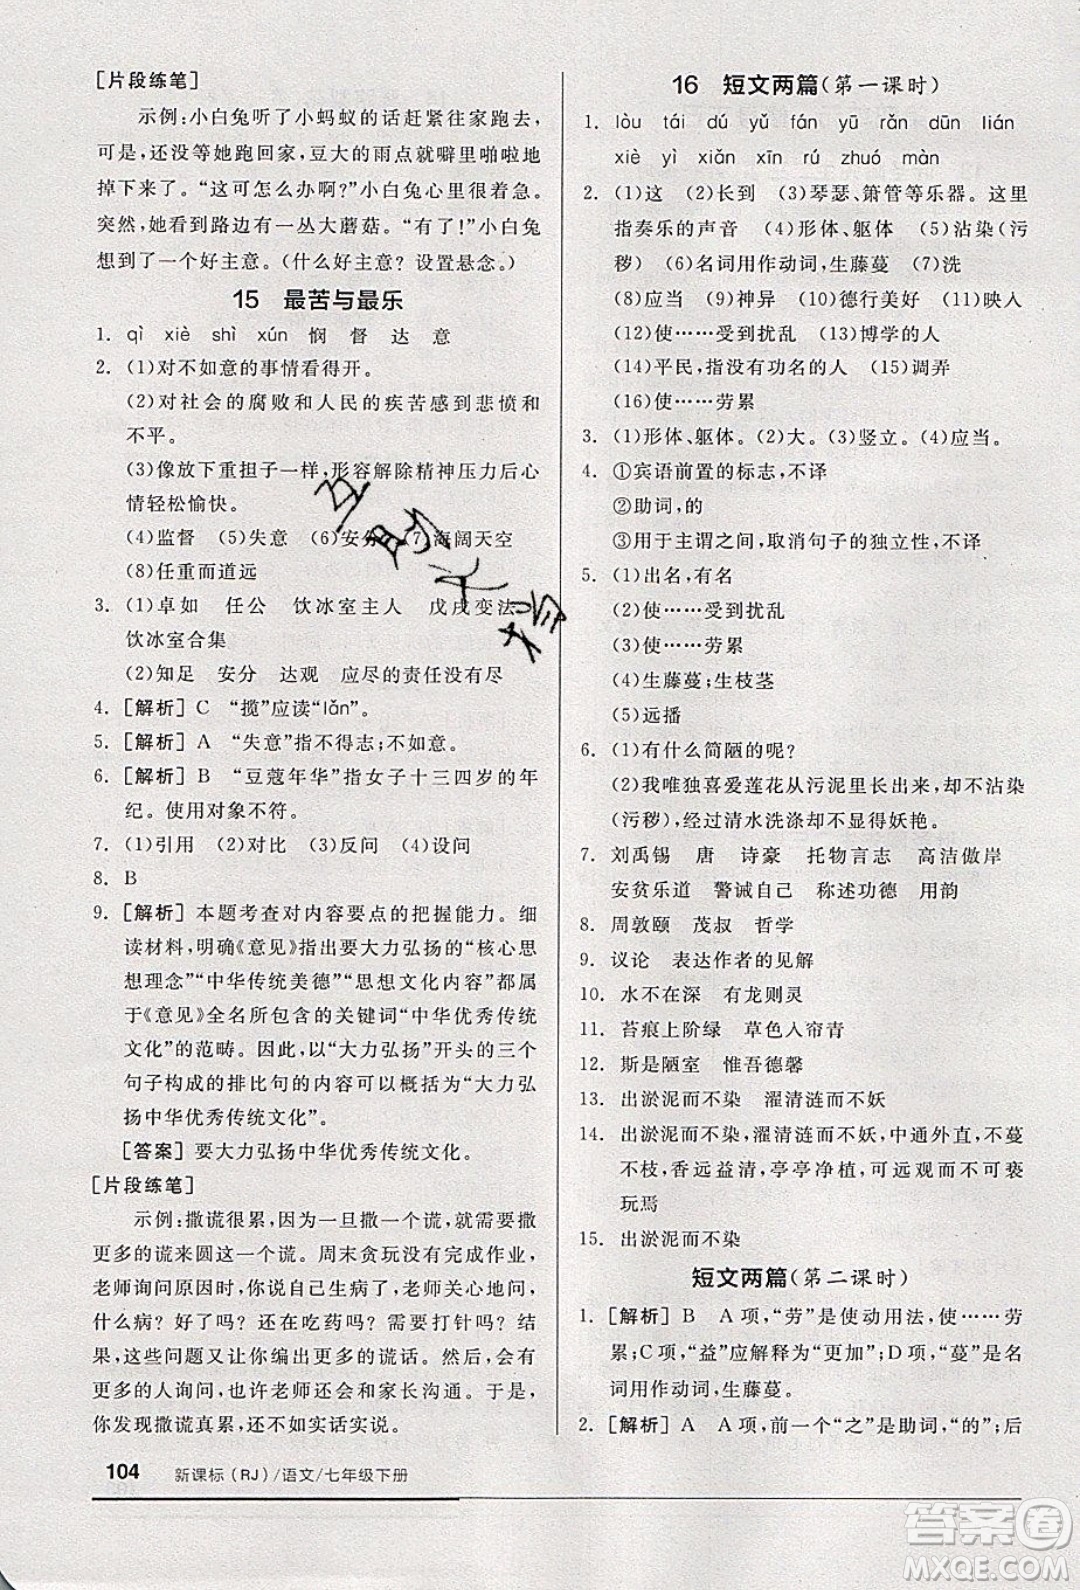 [片段练笔]
示例:小白兔听了小蚂蚁的话赶紧往家跑去,
可是,还没等她跑回家,豆大的雨点就噼里啪啦地
掉下来了。“这可怎么办?”小白兔心里很着急。
突然,她看到路边有一丛大蘑菇。“有了!”小白兔
想到了一个好主意。(什么好主意? 设置悬念。)
15 最苦与最乐
1. qì xiè shì xún 悯 督 达 意
2. (1)对不如意的事情看得开。
(2)对社会的腐败和人民的疾苦感到悲愤和
不平。
(3)像放下重担子一样,形容解除精神压力后心
情轻松愉快。
(4)监督 (5)失意 (6)安分 (7)海阔天空
(8)任重而道远
3. (1)卓如 任公 饮冰室主人 戊戌变法
饮冰室合集
(2)知足 安分 达观 应尽的责任没有尽
4. [解析] C “揽”应读“lǎn”。
5. [解析] A “失意”指不得志;不如意。
6. [解析] B “豆蔻年华”指女子十三四岁的年
纪。使用对象不符。
7. (1)引用 (2)对比 (3)反问 (4)设问
8. B
9. [解析] 本题考查对内容要点的把握能力。细
读材料,明确《意见》指出要大力弘扬的“核心思
想理念”“中华传统美德”“思想文化内容”都属
于《意见》全名所包含的关键词“中华优秀传统
文化”的范畴。因此,以“大力弘扬”开头的三个
句子构成的排比句的内容可以概括为“大力弘
扬中华优秀传统文化”。
[答案] 要大力弘扬中华优秀传统文化。
[片段练笔]
示例:撒谎很累,因为一旦撒一个谎,就需要撒
更多的谎来圆这一个谎。周末贪玩没有完成作业,
老师询问原因时,你说生病了,老师关心地问,
什么病? 好了吗? 还在吃药吗? 需要打针吗? 结
果,这些问题又让你编出更多的谎话。然后,会有
更多的人询问,也许老师还会和家长沟通。于是,
你发现撒谎真累,还不如实话实说。
104 新课标(RJ)/语文/七年级下册
16 短文两篇(第一课时)
1. lòu tái dú yǔ fán yū rǎn dūn lián
xiè yì xiǎn xīn rú zhuó màn
2. (1)这 (2)长到 (3)琴瑟、箫管等乐器。这里
指奏乐的声音 (4)形体、躯体 (5)沾染(污
秽) (6)名词用作动词,生藤蔓 (7)洗
(8)应当 (9)神异 (10)德行美好 (11)映入
(12)使……受到扰乱 (13)博学的人
(14)平民,指没有功名的人 (15)调弄
(16)使……劳累
3. (1)形体、躯体。(2)大。(3)竖立。(4)应当。
4. ①宾语前置的标志,不译
②助词,的
③用于主谓之间,取消句子的独立性,不译
5. (1)出名,有名
(2)使……受到扰乱
(3)使……劳累
(4)生藤蔓;生枝茎
(5)远播
6. (1)有什么简陋的呢?
(2)我唯独喜爱莲花从污泥里长出来,却不沾染
(污秽),经过清水洗涤却不显得妖艳。
7. 刘禹锡 唐 诗豪 托物言志 高洁傲岸
安贫乐道 警诫自己 称述功德 用韵
8. 周敦颐 茂叔 哲学
9. 议论 表达作者的见解
10. 水不在深 有龙则灵
11. 苔痕上阶绿 草色入帘青
12. 斯是陋室 惟吾德馨
13. 出淤泥而不染 濯清涟而不妖
14. 出淤泥而不染,濯清涟而不妖,中通外直,不蔓
不枝,香远益清,亭亭净植,可远观而不可亵
玩焉
15. 出淤泥而不染
短文两篇(第二课时)
1. [解析] B A项,“劳”是使动用法,使……劳
累;C项,“益”应解释为“更加”;D项,“蔓”是名
词用作动词,生藤蔓。
2. [解析] A A项,前一个“之”是助词,“的”;后
答案圈
MXQE.COM